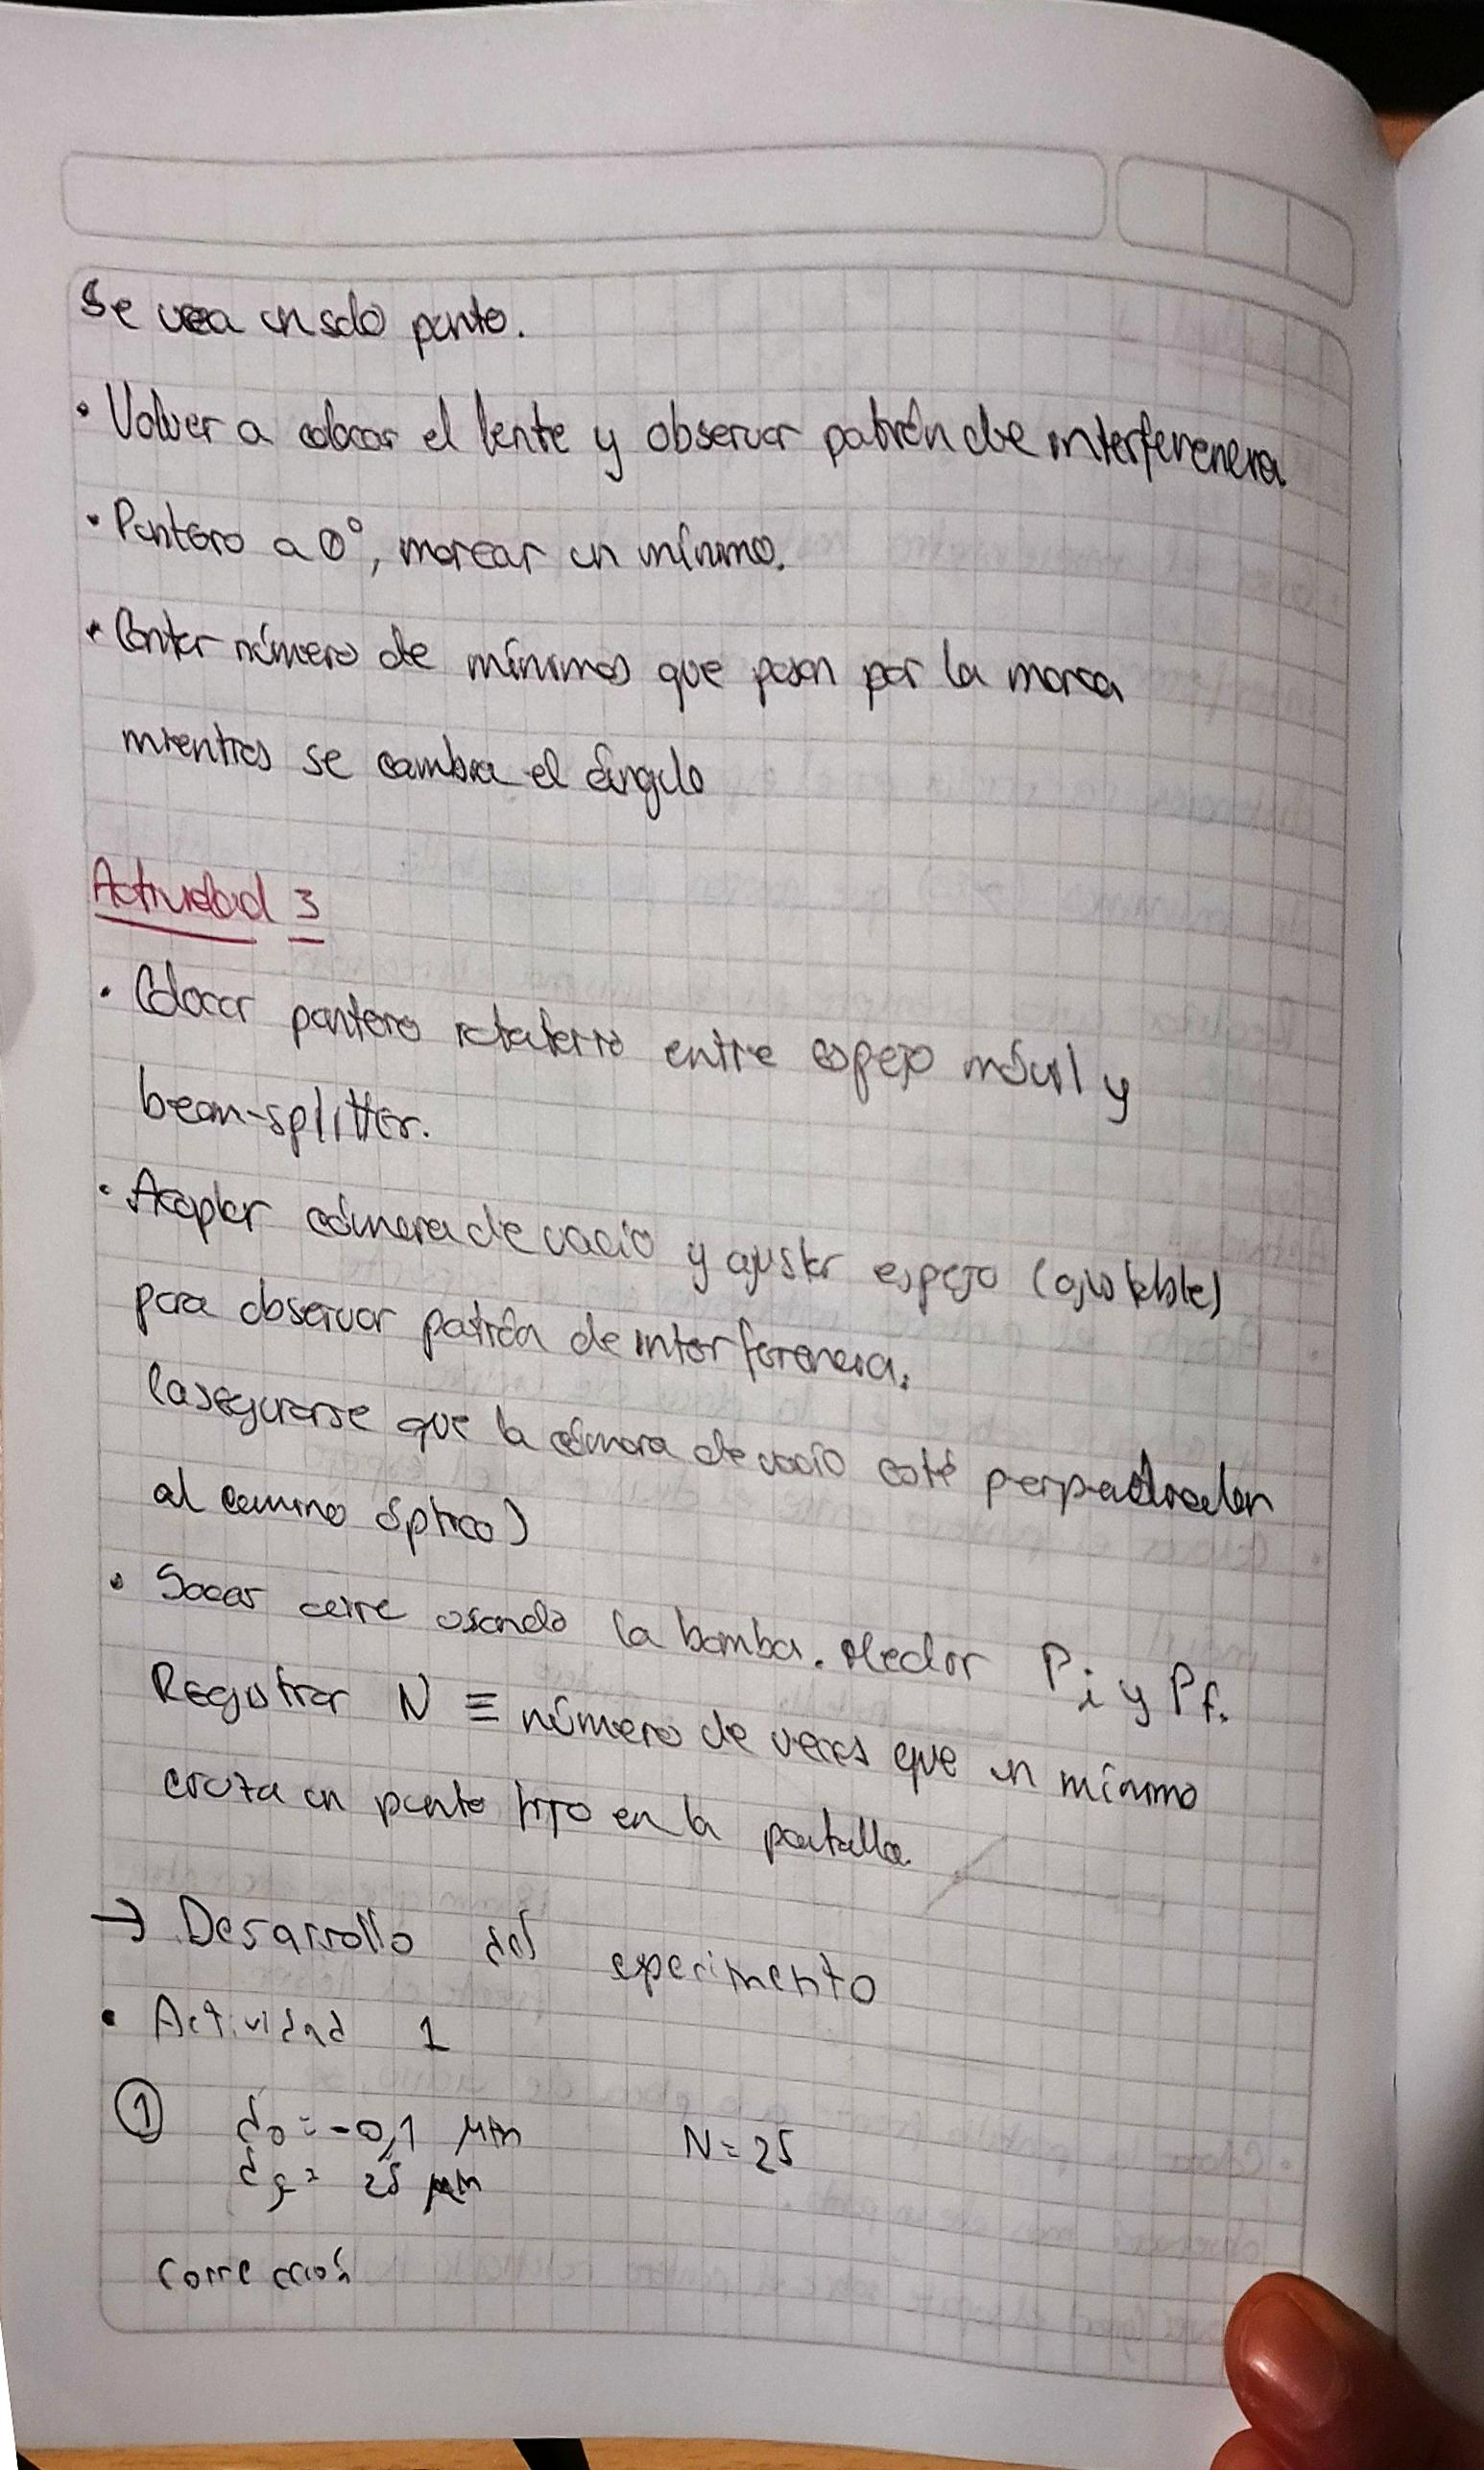 Se vea un solo punto.
• Volver a colocar el lente y observar patrón de interferencia.
• Puntero a 0°, marcar un mínimo.
• Contar número de mínimos que pasan por la marca
mientras se cambia el ángulo
Actividad 3
• Colocar puntero rotatorio entre espejo móvil y
beam-splitter.
• Acoplar cámara de vacío y ajustar espejo (ajustable)
para observar patrón de interferencia.
(asegurarse que la cámara de vacío esté perpendicular
al camino óptico)
• Sacar aire usando la bomba. Medir Pi y Pf.
Registrar N ≡ número de veces que un mínimo
cruza un punto fijo en la pantalla.
→ Desarrollo del experimento
• Actividad 1
① d₀ = -0,1 μm N = 25
df = 25 μm
Corrección